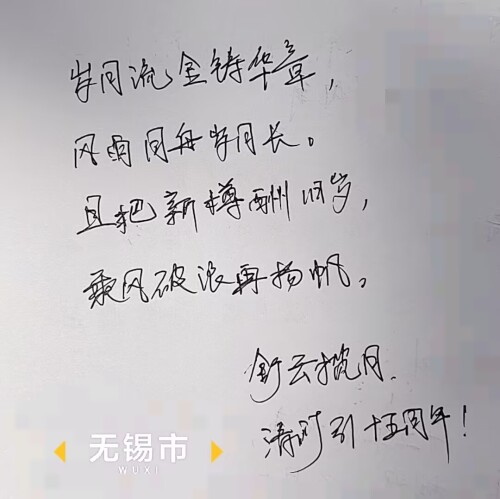 岁月流金铸华章，
风雨同舟岁月长。
且把新樽酬旧岁，
乘风破浪再扬帆。
舒云揽月
清时引十五周年！
无锡市
WUXI